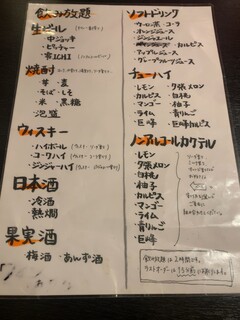 飲み放題
生ビール
・中ジョッキ
・ピッチャー
焼酎
・芋・麦
・そば・しそ
・米・黒糖
・泡盛
ウィスキー
・ハイボール
・コークハイ
・ジンジャーハイ
日本酒
・冷酒
・熱燗
果実酒
・梅酒・あんず酒
ソフトドリンク
・ウーロン茶・コーラ
・オレンジジュース
・ジンジャーエール
・カルピス
・アップルジュース
・グレープフルーツジュース
チューハイ
・レモン・夕張メロン
・カルピス・白桃
・マンゴー・柚子
・ライム・青りんご
・巨峰・巨峰カルピス
ノンアルコールカクテル
・レモン
・夕張メロン
・白桃
・柚子
・カルピス
・マンゴー
・ライム
・青りんご
・巨峰
飲み放題は2時間です。
ラストオーダーは15分前